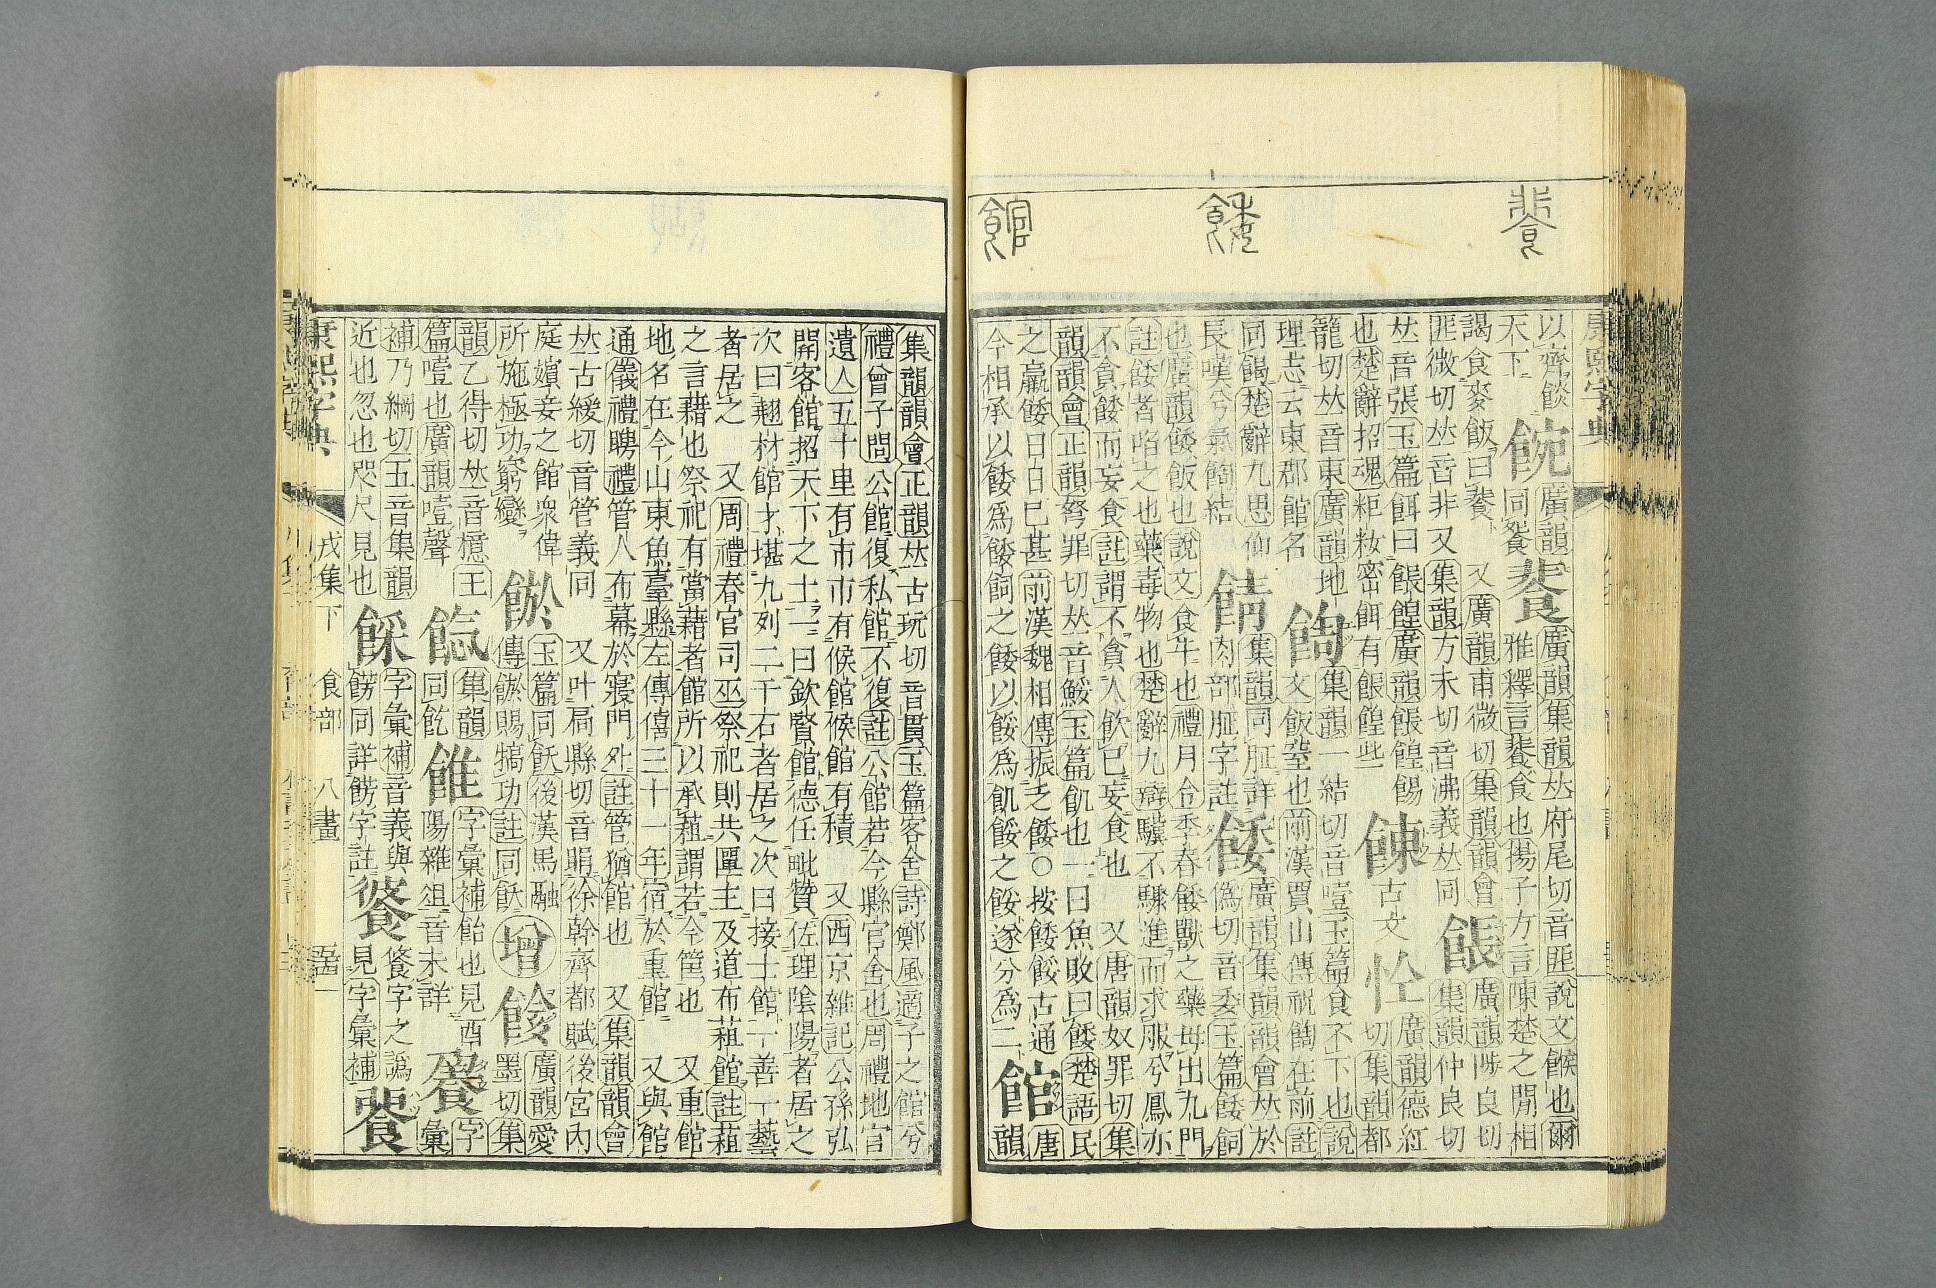 饣非食
餧
館
康熙字典
以齊餤
天下
同餐
廣韻
餥
廣韻集韻𠀤府尾切音匪說文餱也爾
雅釋言餥食也揚子方言陳楚之閒相
謁食麥飯曰餥 又廣韻甫微切集韻韻會
匪微切𠀤音非又集韻方未切音沸義𠀤同
餦
廣韻陟良切
集韻仲良切
𠀤音張玉篇餌曰餦餭廣韻餦餭餳
也楚辭招魂粔籹密餌有餦餭些
古文
廣韻德紅
切集韻都
籠切𠀤音東廣韻地
理志云東郡館名
集韻一結切音噎玉篇食不下也說
文飯窒也前漢賈山傳祝 在前註
同 楚辭九思仰
長嘆兮氣 結
集韻同胵詳
肉部胵字註
餧
廣韻集韻韻會𠀤於
僞切音委玉篇餧飼
也廣韻餧飯也說文食牛也禮月令季春餧獸之藥毋出九門
註餧者啗之也藥毒物也楚辭九辯驥不驟進而求服兮鳳亦
不貪餧而妄食註謂不貪人飮已妄食也 又唐韻奴罪切集
韻韻會正韻弩罪切𠀤音鮾玉篇飢也一曰魚敗曰餧楚語民
之羸餧日日已甚前漢魏相傳振乏餧○按餧餒古通
今相承以餧爲餧飼之餧以餒爲飢餒之餒遂分爲二
館
唐
韻
集韻韻會正韻𠀤古玩切音貫玉篇客舍詩鄭風適子之館兮
禮曾子問公館復私館不復註公館若今縣官舍也周禮地官
遺人五十里有市市有候館候館有積 又西京雜記公孫弘
開客館招天下之士一曰欽賢館德任毗贊佐理陰陽者居之
次曰翹材館才堪九列二千石者居之次曰接士館一善一藝
者居之 又周禮春官司巫祭祀則共匰主及道布蒩館註蒩
之言藉也祭祀有當藉者館所以承蒩謂若今筐也 又重館
地名在今山東魚臺縣左傳僖三十一年宿於重館 又與館
通儀禮聘禮管人布幕於寢門外註管猶館也 又集韻韻會
𠀤古緩切音管義同 又叶扃縣切音睊徐幹齊都賦後宮內
庭嬪妾之館衆偉
所施極功窮變
䬽
玉篇同飫後漢馬融
傳䬽賜犒功註同飫
增
餩
廣韻愛
墨切集
韻乙得切𠀤音檍玉
篇噎也廣韻噎聲
集韻
同飢
字彙補飴也見酉
陽雜俎音未詳
字
彙
補乃綱切五音集韻
近也忽也咫尺見也
字彙補音義與
餝同詳餝字註
餐字之譌
見字彙補
康熙字典
戌集下 食部 八畫